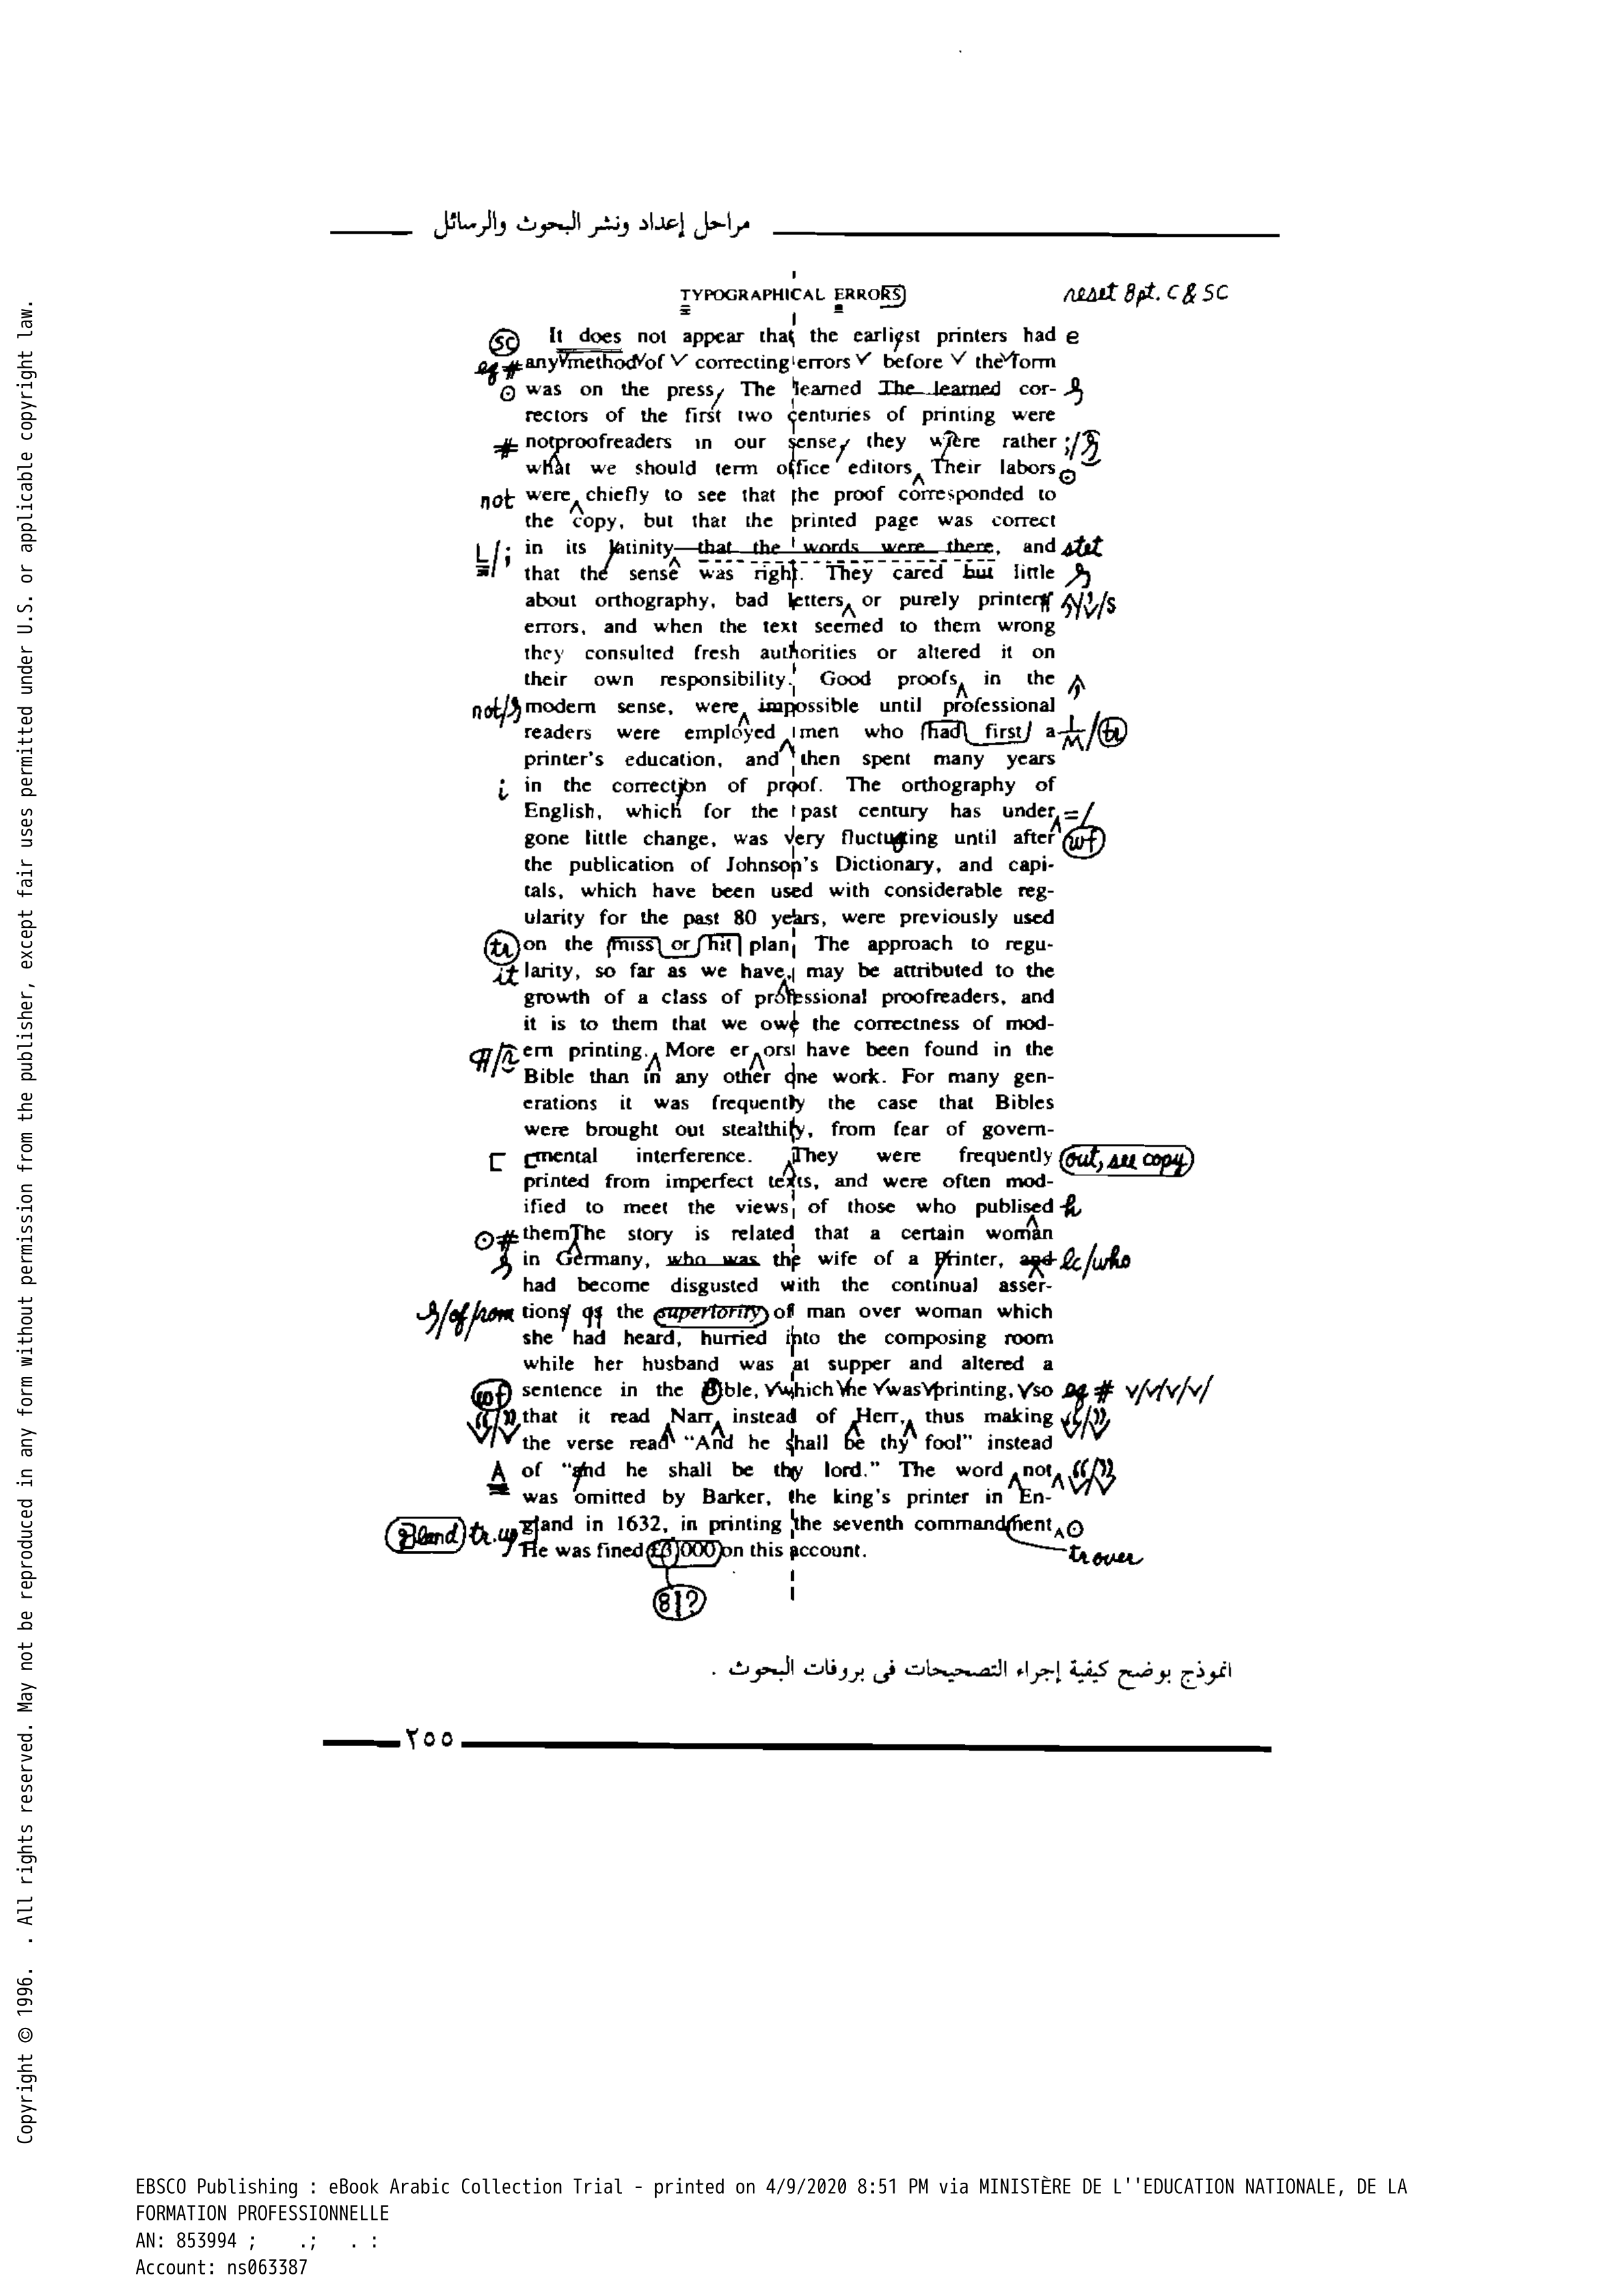 مراحل إعداد ونشر البحوث والرسائل
TYPOGRAPHICAL ERRORS reset 8 pt. C & SC
sc It does not appear that the earliest printers had e
eq # any method of correcting errors before the form
⊙ was on the press, The learned The learned cor-
rectors of the first two centuries of printing were
# notproofreaders in our sense, they were rather ;/
what we should term office editors Their labors ⊙
not were chiefly to see that the proof corresponded to
the copy, but that the printed page was correct
L/; in its latinity—that the words were there, and stet
that the sense was right. They cared but little
about orthography, bad letters or purely printers
errors, and when the text seemed to them wrong
they consulted fresh authorities or altered it on
their own responsibility. Good proofs in the
not/ modern sense, were impossible until professional
readers were employed men who had first a 1/M/tr
printer's education, and then spent many years
i in the correctjon of proof. The orthography of
English, which for the past century has under =/
gone little change, was very fluctuating until after wf
the publication of Johnson's Dictionary, and capi-
tals, which have been used with considerable reg-
ularity for the past 80 years, were previously used
tr on the miss or hit plan, The approach to regu-
it larity, so far as we have, may be attributed to the
growth of a class of professional proofreaders, and
it is to them that we owe the correctness of mod-
¶/r ern printing. More er ors have been found in the
Bible than in any other one work. For many gen-
erations it was frequently the case that Bibles
were brought out stealthily, from fear of govern-
[ mental interference. They were frequently out, see copy
printed from imperfect texts, and were often mod-
ified to meet the views of those who publised h
⊙# themThe story is related that a certain woman
in Germany, who was the wife of a Printer, and lc/who
had become disgusted with the continual asser-
/of/rom tions of the supertority of man over woman which
she had heard, hurried into the composing room
while her husband was at supper and altered a
wf sentence in the Bible, which he was printing, so eq # v/v/v/v/
“/” that it read Narr instead of Herr, thus making “/”
the verse read “And he shall be thy fool” instead
A of “and he shall be thy lord.” The word not “/”
was omitted by Barker, the king's printer in En-
gland tr. up gland in 1632, in printing the seventh commandment ⊙
He was fined £3,000 on this account. tr over
8|?
انموذج يوضح كيفية إجراء التصحيحات فى بروفات البحوث .
٢٥٥
Copyright © 1996. . All rights reserved. May not be reproduced in any form without permission from the publisher, except fair uses permitted under U.S. or applicable copyright law.
EBSCO Publishing : eBook Arabic Collection Trial - printed on 4/9/2020 8:51 PM via MINISTÈRE DE L''EDUCATION NATIONALE, DE LA
FORMATION PROFESSIONNELLE
AN: 853994 ; .; . :
Account: ns063387